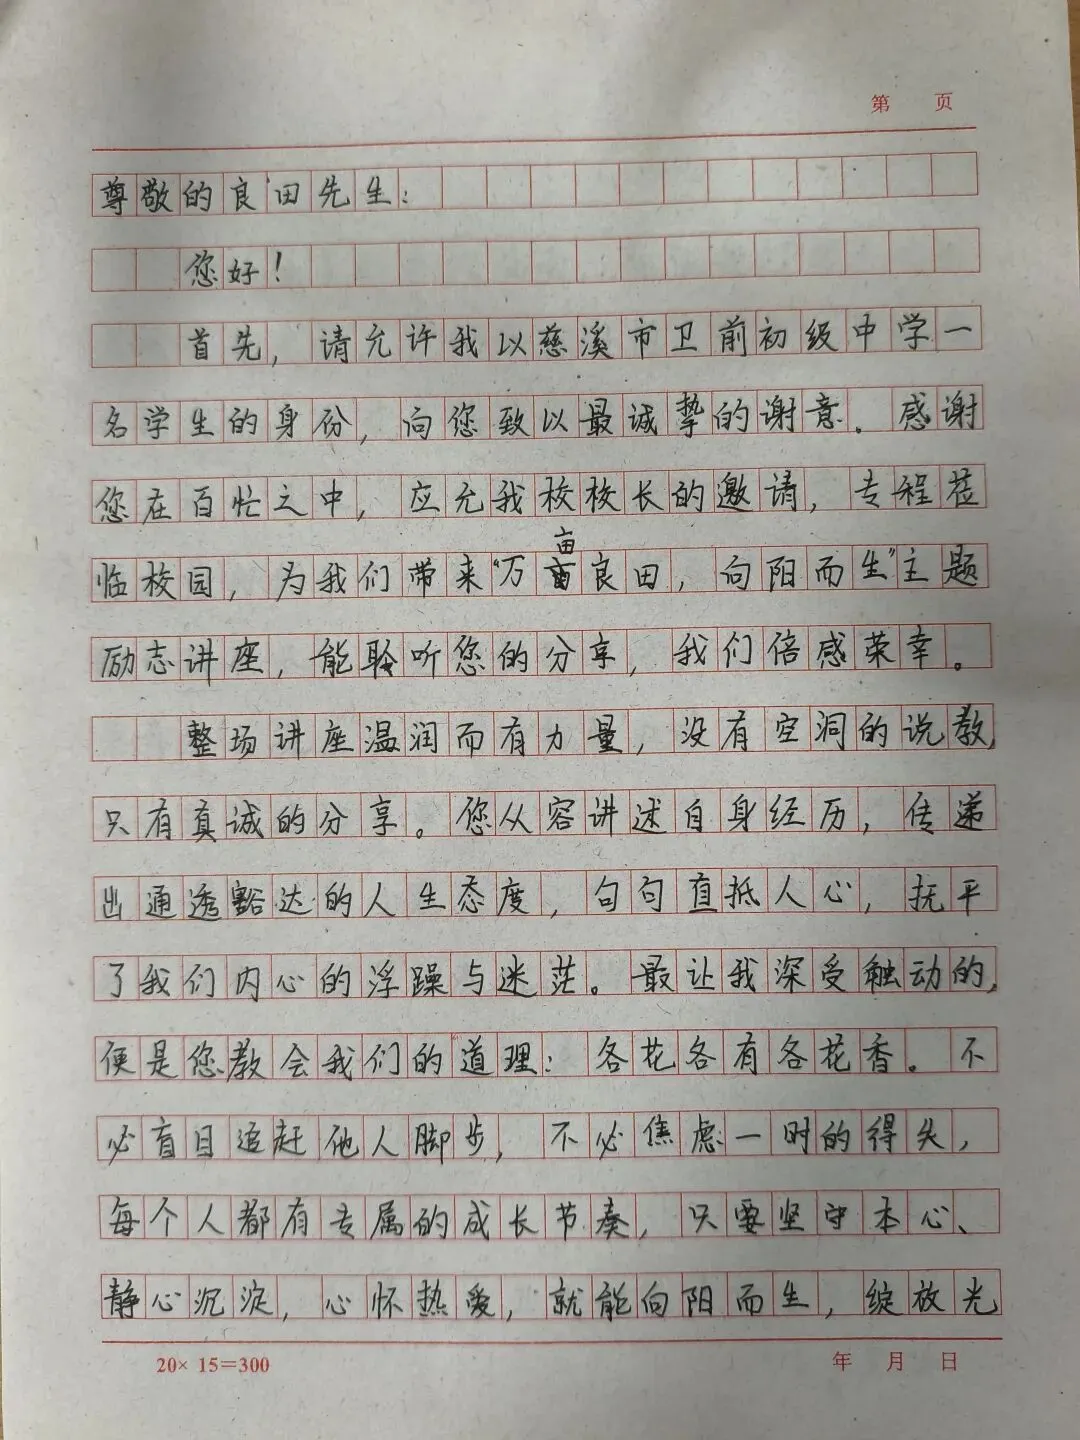 第 页
尊敬的良田先生：
您好！
首先，请允许我以慈溪市卫前初级中学一
名学生的身份，向您致以最诚挚的谢意。感谢
您在百忙之中，应允我校校长的邀请，专程莅
临校园，为我们带来“万亩良田，向阳而生”主题
励志讲座，能聆听您的分享，我们倍感荣幸。
整场讲座温润而有力量，没有空洞的说教，
只有真诚的分享。您从容讲述自身经历，传递
出通透豁达的人生态度，句句直抵人心，抚平
了我们内心的浮躁与迷茫。最让我深受触动的，
便是您教会我们的道理：各花各有各花香。不
必盲目追赶他人脚步，不必焦虑一时的得失，
每个人都有专属的成长节奏，只要坚守本心、
静心沉淀，心怀热爱，就能向阳而生，绽放光
20×15=300 年 月 日